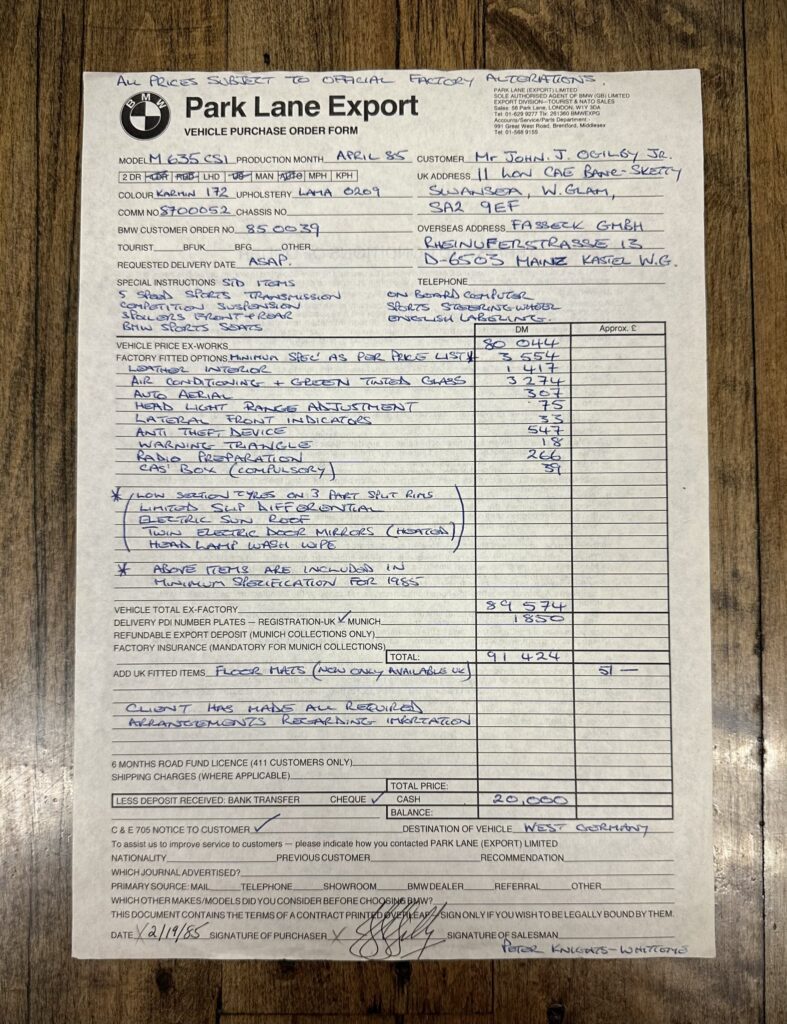 ALL PRICES SUBJECT TO OFFICIAL FACTORY ALTERATIONS
BMW
Park Lane Export
VEHICLE PURCHASE ORDER FORM
PARK LANE (EXPORT) LIMITED
SOLE AUTHORISED AGENT OF BMW (GB) LIMITED
EXPORT DIVISION—TOURIST & NATO SALES
Sales: 56 Park Lane, LONDON, W1Y 3DA
Tel: 01-629 9277 Tlx: 261360 BMWEXPG
Accounts/Service/Parts Department:
991 Great West Road, Brentford, Middlesex
Tel: 01-568 9155
MODEL M635 CSI PRODUCTION MONTH APRIL 85 CUSTOMER Mr JOHN. J. OGILBY JR.
2 DR LHD MAN AUTO MPH KPH UK ADDRESS 11 LON CAE BANC-SKETTY
COLOUR KARMIN 172 UPHOLSTERY LAMA 0209 SWANSEA, W.GLAM,
COMM NO 8700052 CHASSIS NO SA2 9EF
BMW CUSTOMER ORDER NO. 850039 OVERSEAS ADDRESS FASBECK GMBH
TOURIST BFUK BFG OTHER RHEINUFERSTRASSE 13
REQUESTED DELIVERY DATE ASAP. D-6503 MAINZ KASTEL W.G.
SPECIAL INSTRUCTIONS STD ITEMS TELEPHONE
5 SPEED SPORTS TRANSMISSION ON BOARD COMPUTER
COMPETITION SUSPENSION SPORTS STEERING WHEEL
SPOILERS FRONT + REAR ENGLISH LABELING.
BMW SPORTS SEATS DM Approx. £
VEHICLE PRICE EX-WORKS 80 044
FACTORY FITTED OPTIONS MINIMUM SPEC' AS PER PRICE LIST * 3 554
LEATHER INTERIOR 1 417
AIR CONDITIONING + GREEN TINTED GLASS 3 274
AUTO AERIAL 307
HEAD LIGHT RANGE ADJUSTMENT 75
LATERAL FRONT INDICATORS 33
ANTI THEFT DEVICE 547
WARNING TRIANGLE 18
RADIO PREPARATION 266
CAS' BOX (COMPULSORY) 39
* (LOW SECTION TYRES ON 3 PART SPLIT RIMS
LIMITED SLIP DIFFERENTIAL
ELECTRIC SUN ROOF
TWIN ELECTRIC DOOR MIRRORS (HEATED)
HEAD LAMP WASH WIPE)
* ABOVE ITEMS ARE INCLUDED IN
MINIMUM SPECIFICATION FOR 1985
VEHICLE TOTAL EX-FACTORY 89 574
DELIVERY PDI NUMBER PLATES — REGISTRATION-UK ✓ MUNICH 1850
REFUNDABLE EXPORT DEPOSIT (MUNICH COLLECTIONS ONLY)
FACTORY INSURANCE (MANDATORY FOR MUNICH COLLECTIONS)
TOTAL: 91 424
ADD UK FITTED ITEMS FLOOR MATS (NOW ONLY AVAILABLE UK) 51 —
CLIENT HAS MADE ALL REQUIRED
ARRANGEMENTS REGARDING IMPORTATION
6 MONTHS ROAD FUND LICENCE (411 CUSTOMERS ONLY)
SHIPPING CHARGES (WHERE APPLICABLE)
TOTAL PRICE:
LESS DEPOSIT RECEIVED: BANK TRANSFER CHEQUE ✓ CASH 20,000
BALANCE:
C & E 705 NOTICE TO CUSTOMER ✓ DESTINATION OF VEHICLE WEST GERMANY
To assist us to improve service to customers — please indicate how you contacted PARK LANE (EXPORT) LIMITED
NATIONALITY PREVIOUS CUSTOMER RECOMMENDATION
WHICH JOURNAL ADVERTISED?
PRIMARY SOURCE: MAIL TELEPHONE SHOWROOM BMW DEALER REFERRAL OTHER
WHICH OTHER MAKES/MODELS DID YOU CONSIDER BEFORE CHOOSING BMW?
THIS DOCUMENT CONTAINS THE TERMS OF A CONTRACT PRINTED OVERLEAF. SIGN ONLY IF YOU WISH TO BE LEGALLY BOUND BY THEM.
DATE X 2/19/85 SIGNATURE OF PURCHASER X SIGNATURE OF SALESMAN
PETER KNIGHTS-WHITTOME